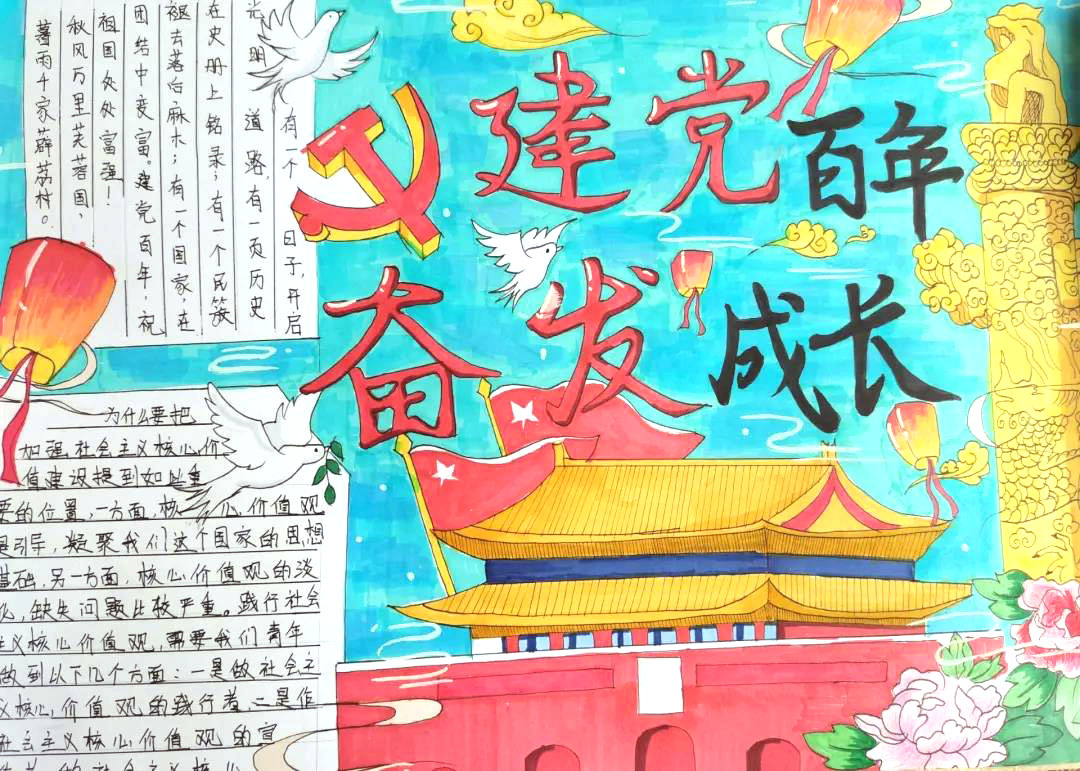 建党百年
奋发成长
有一个日子,开启
光明道路,有一页历史
在史册上铭录;有一个民族
褪去落后麻木;有一个国家,在
团结中变富。建党百年,祝
祖国处处富强!
秋风万里芙蓉国,
暮雨千家薜荔村。
为什么要把
加强社会主义核心价
值建设提到如此重
要的位置,一方面,核心价值观
是引导,凝聚我们这个国家的思想
基础,另一方面,核心价值观的淡
化,缺失问题比较严重。践行社会
主义核心价值观,需要我们青年
做到以下几个方面:一是做社会主
义核心价值观的践行者,二是作
社会主义核心价值观的宣
的社会主义核心